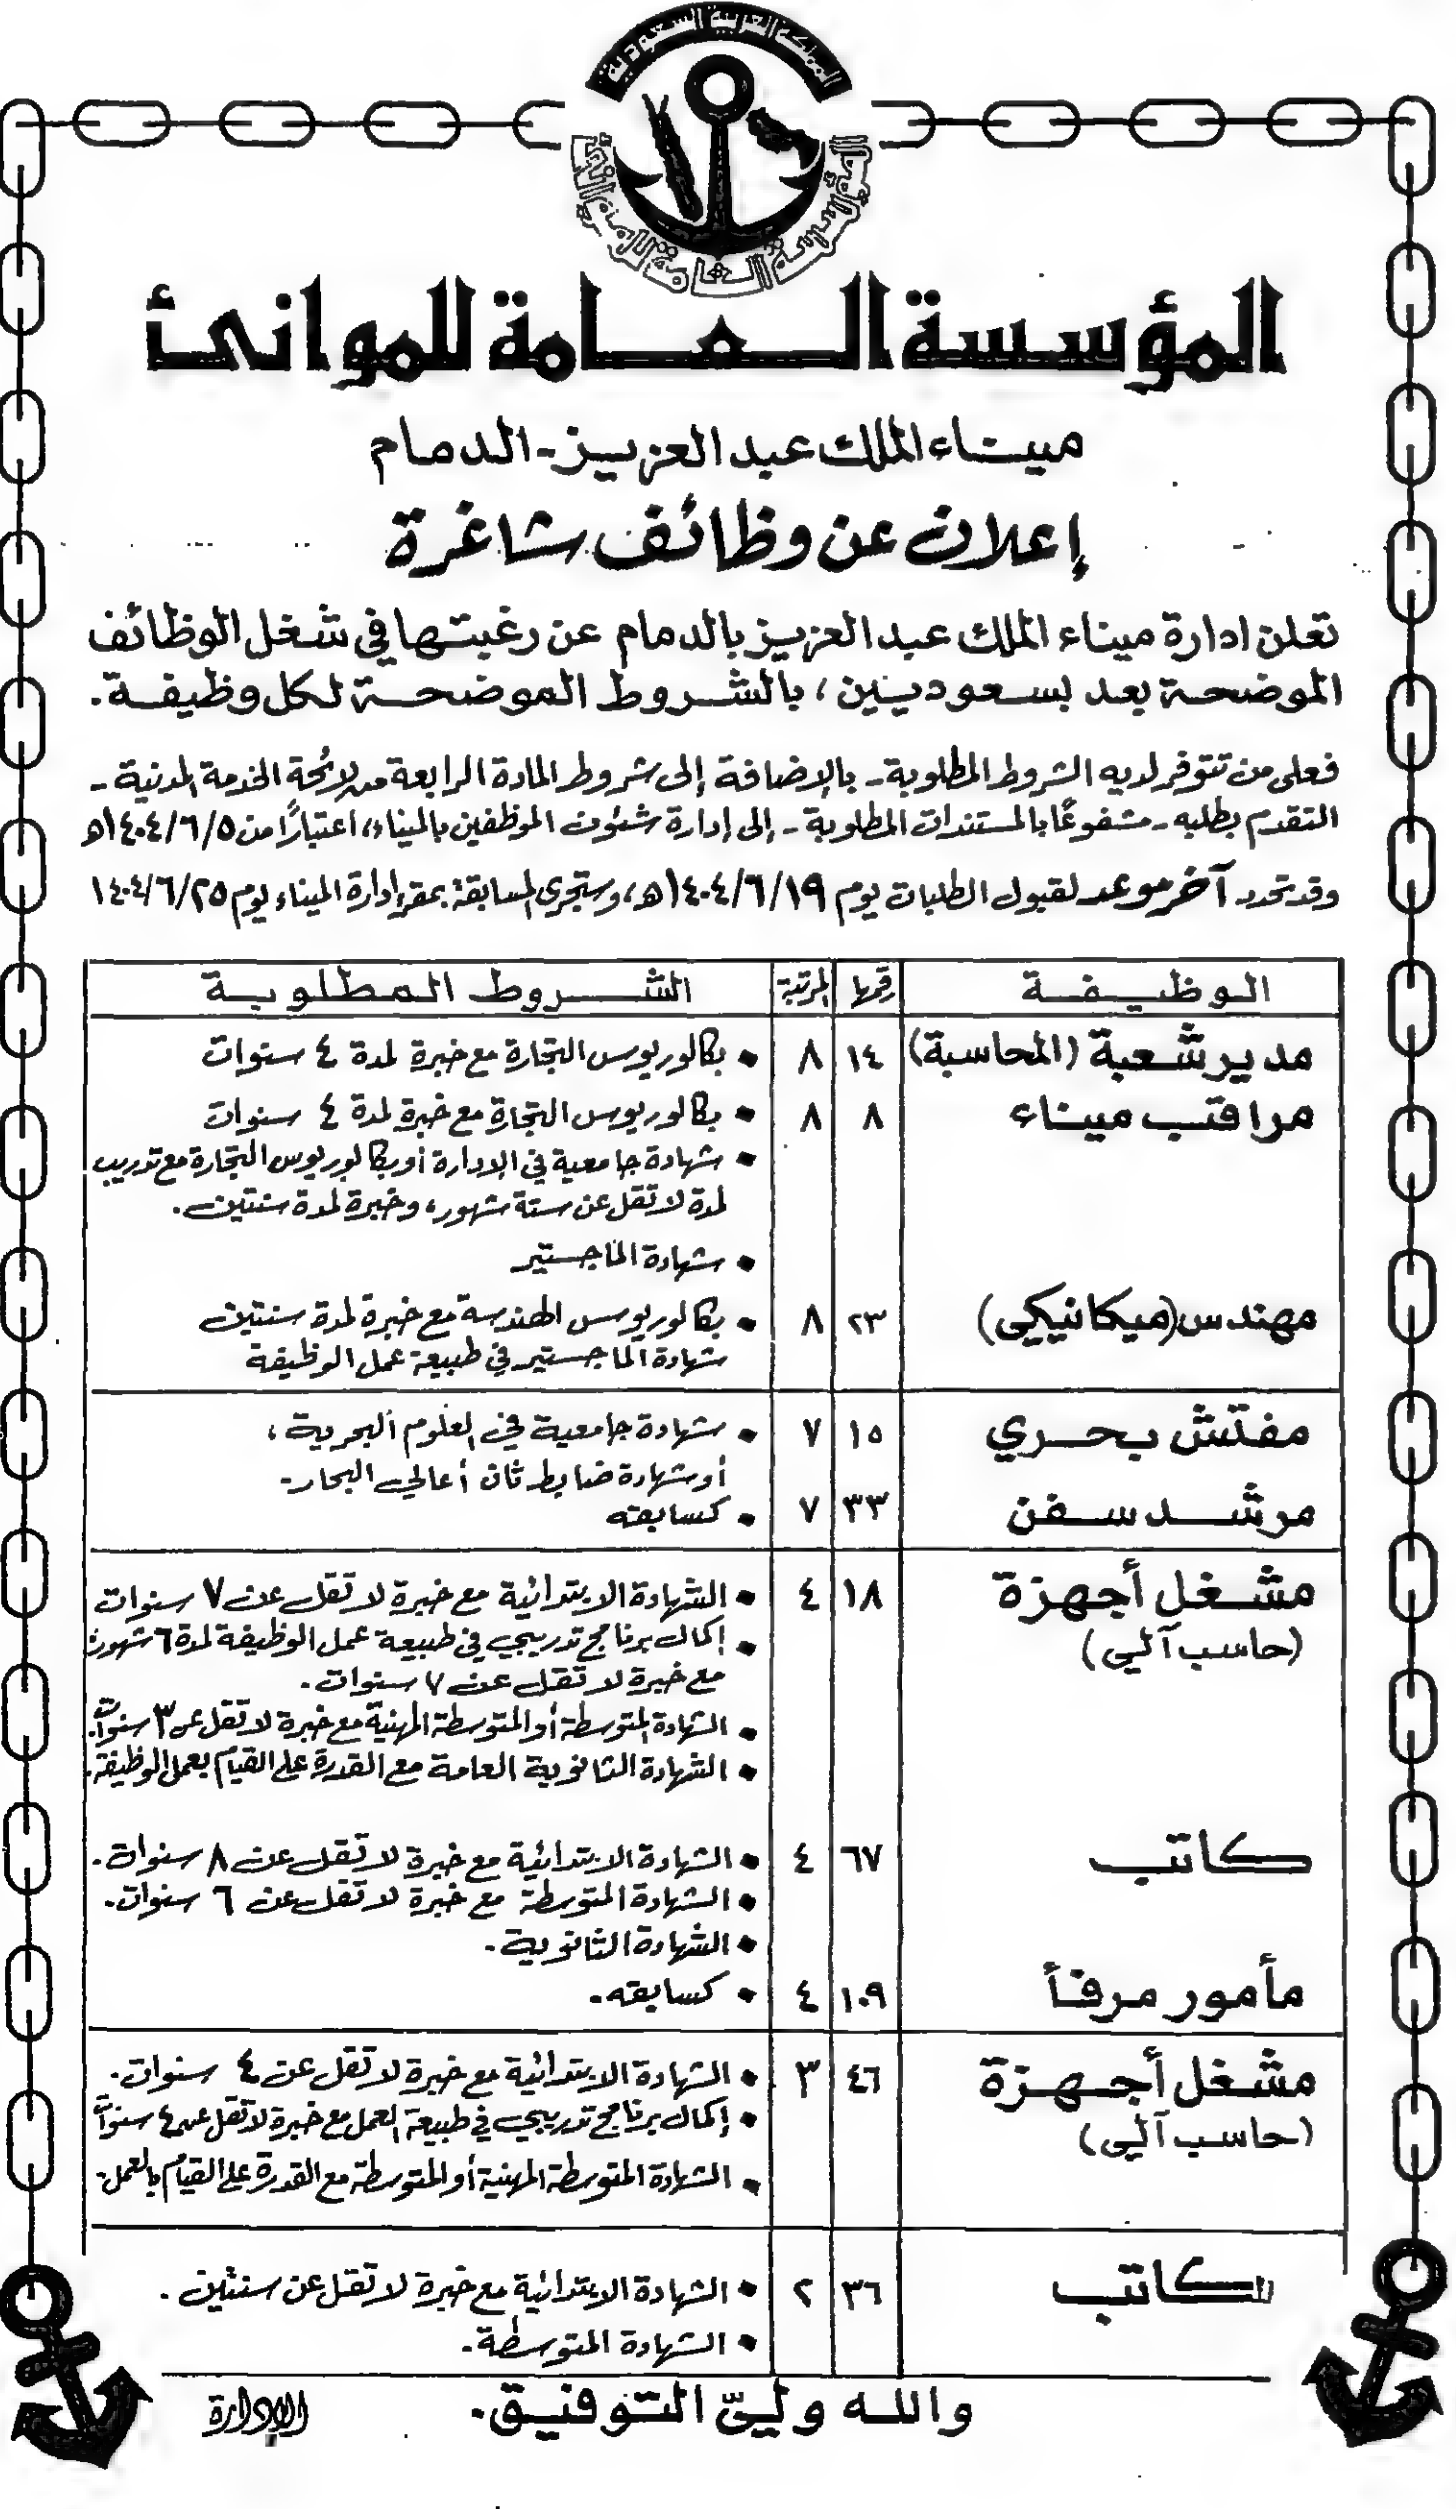 المملكة العربية السعودية
المؤسسة العامة للموانئ
المؤسسة العامة للموانئ
ميناء الملك عبد العزيز - الدمام
إعلان عن وظائف شاغرة
تعلن ادارة ميناء الملك عبد العزيز بالدمام عن رغبتها في شغل الوظائف
الموضحة بعد بسعوديين، بالشروط الموضحة لكل وظيفة.
فعلى من تتوفر لديه الشروط المطلوبة - بالإضافة إلى شروط المادة الرابعة من لائحة الخدمة المدنية -
التقدم بطلبه - مشفوعًا بالمستندات المطلوبة - إلى إدارة شئون الموظفين بالميناء، اعتبارًا من ١٤٠٤/٦/٥هـ
وقد تحدد آخر موعد لقبول الطلبات يوم ١٤٠٤/٦/١٩هـ، وستجرى المسابقة بمقر إدارة الميناء يوم ١٤٠٤/٦/٢٥
الوظيفة رقمها المرتبة الشروط المطلوبة
مدير شعبة (المحاسبة) ١٤ ٨ • بكالوريوس التجارة مع خبرة لمدة ٤ سنوات
مراقب ميناء ٨ ٨ • بكالوريوس التجارة مع خبرة لمدة ٤ سنوات
• شهادة جامعية في الإدارة أو بكالوريوس التجارة مع تدريب
لمدة لا تقل عن ستة شهور، وخبرة لمدة سنتين.
• شهادة الماجستير
مهندس (ميكانيكي) ٢٣ ٨ • بكالوريوس الهندسة مع خبرة لمدة سنتين
شهادة الماجستير في طبيعة عمل الوظيفة
مفتش بحري ١٥ ٧ • شهادة جامعية في العلوم البحرية،
أو شهادة ضابط ثان أعالي البحار.
مرشد سفن ٣٣ ٧ • كسابقه
مشغل أجهزة ١٨ ٤ • الشهادة الابتدائية مع خبرة لا تقل عن ٧ سنوات
(حاسب آلي) • إكمال برنامج تدريبي في طبيعة عمل الوظيفة لمدة ٦ شهور
مع خبرة لا تقل عن ٧ سنوات.
• الشهادة المتوسطة أو المتوسطة المهنية مع خبرة لا تقل عن ٣ سنوات.
• الشهادة الثانوية العامة مع القدرة على القيام بعمل الوظيفة.
كاتب ٦٧ ٤ • الشهادة الابتدائية مع خبرة لا تقل عن ٨ سنوات.
• الشهادة المتوسطة مع خبرة لا تقل عن ٦ سنوات.
• الشهادة الثانوية.
مأمور مرفأ ١٠٩ ٤ • كسابقه.
مشغل أجهزة ٤٦ ٣ • الشهادة الابتدائية مع خبرة لا تقل عن ٤ سنوات.
(حاسب آلي) • إكمال برنامج تدريبي في طبيعة العمل مع خبرة لا تقل عن ٤ سنوات
• الشهادة المتوسطة المهنية أو المتوسطة مع القدرة على القيام بالعمل.
كاتب ٣٦ ٢ • الشهادة الابتدائية مع خبرة لا تقل عن سنتين.
• الشهادة المتوسطة.
والله وليّ التوفيق.
الإدارة